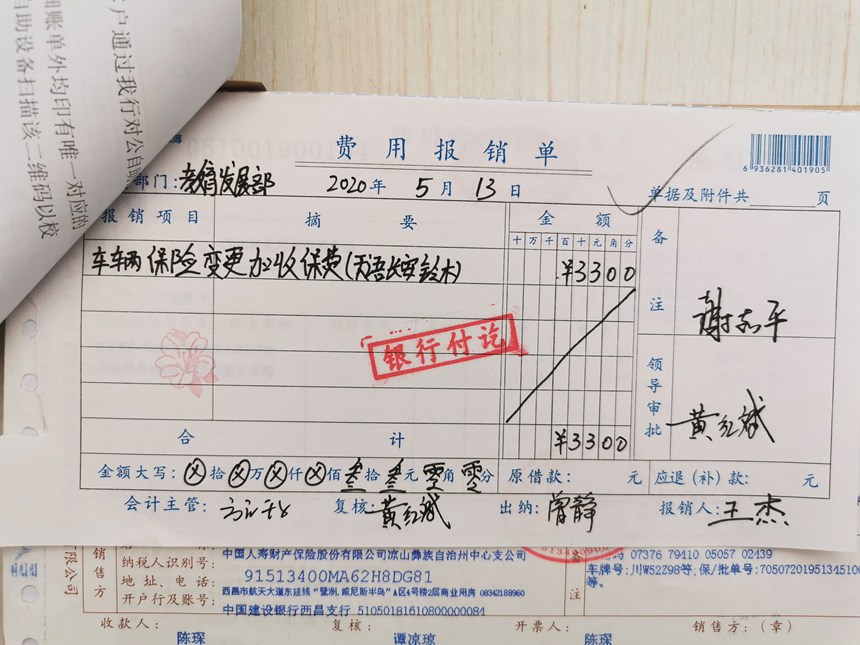 客户通过我行对公自助
细账单外均印有唯一对应的
自助设备扫描该二维码以校
费用报销单
6 936281 401905
部门: 发展部 2020年 5月 13日 单据及附件共 页
报销项目 摘要 金额 备注
十万千百十元角分
车车辆保险变更加收保费( 长安铃木) ¥3300
银行付讫
领导审批 黄红斌
合计 ¥3300
金额大写: ⊗拾⊗万⊗仟⊗佰叁拾叁元零角零分 原借款: 元 应退(补)款: 元
会计主管: 复核: 黄红斌 出纳: 曾静 报销人: 王杰
销售方
中国人寿财产保险股份有限公司凉山彝族自治州中心支公司
纳税人识别号: 91513400MA62H8DG81
地址、电话: 西昌市航天大道东延线"壁洲.威尼斯半岛"A区4号楼2层商业用房 08342188960
开户行及账号: 中国建设银行西昌支行 51050181610800000084
备注
07376 79410 05057 02439
车牌号:川W52298等;保/批单号:7050720195134510
等。
有限公司
收款人: 陈琛 复核: 谭凉琼 开票人: 陈琛 销售方:(章)